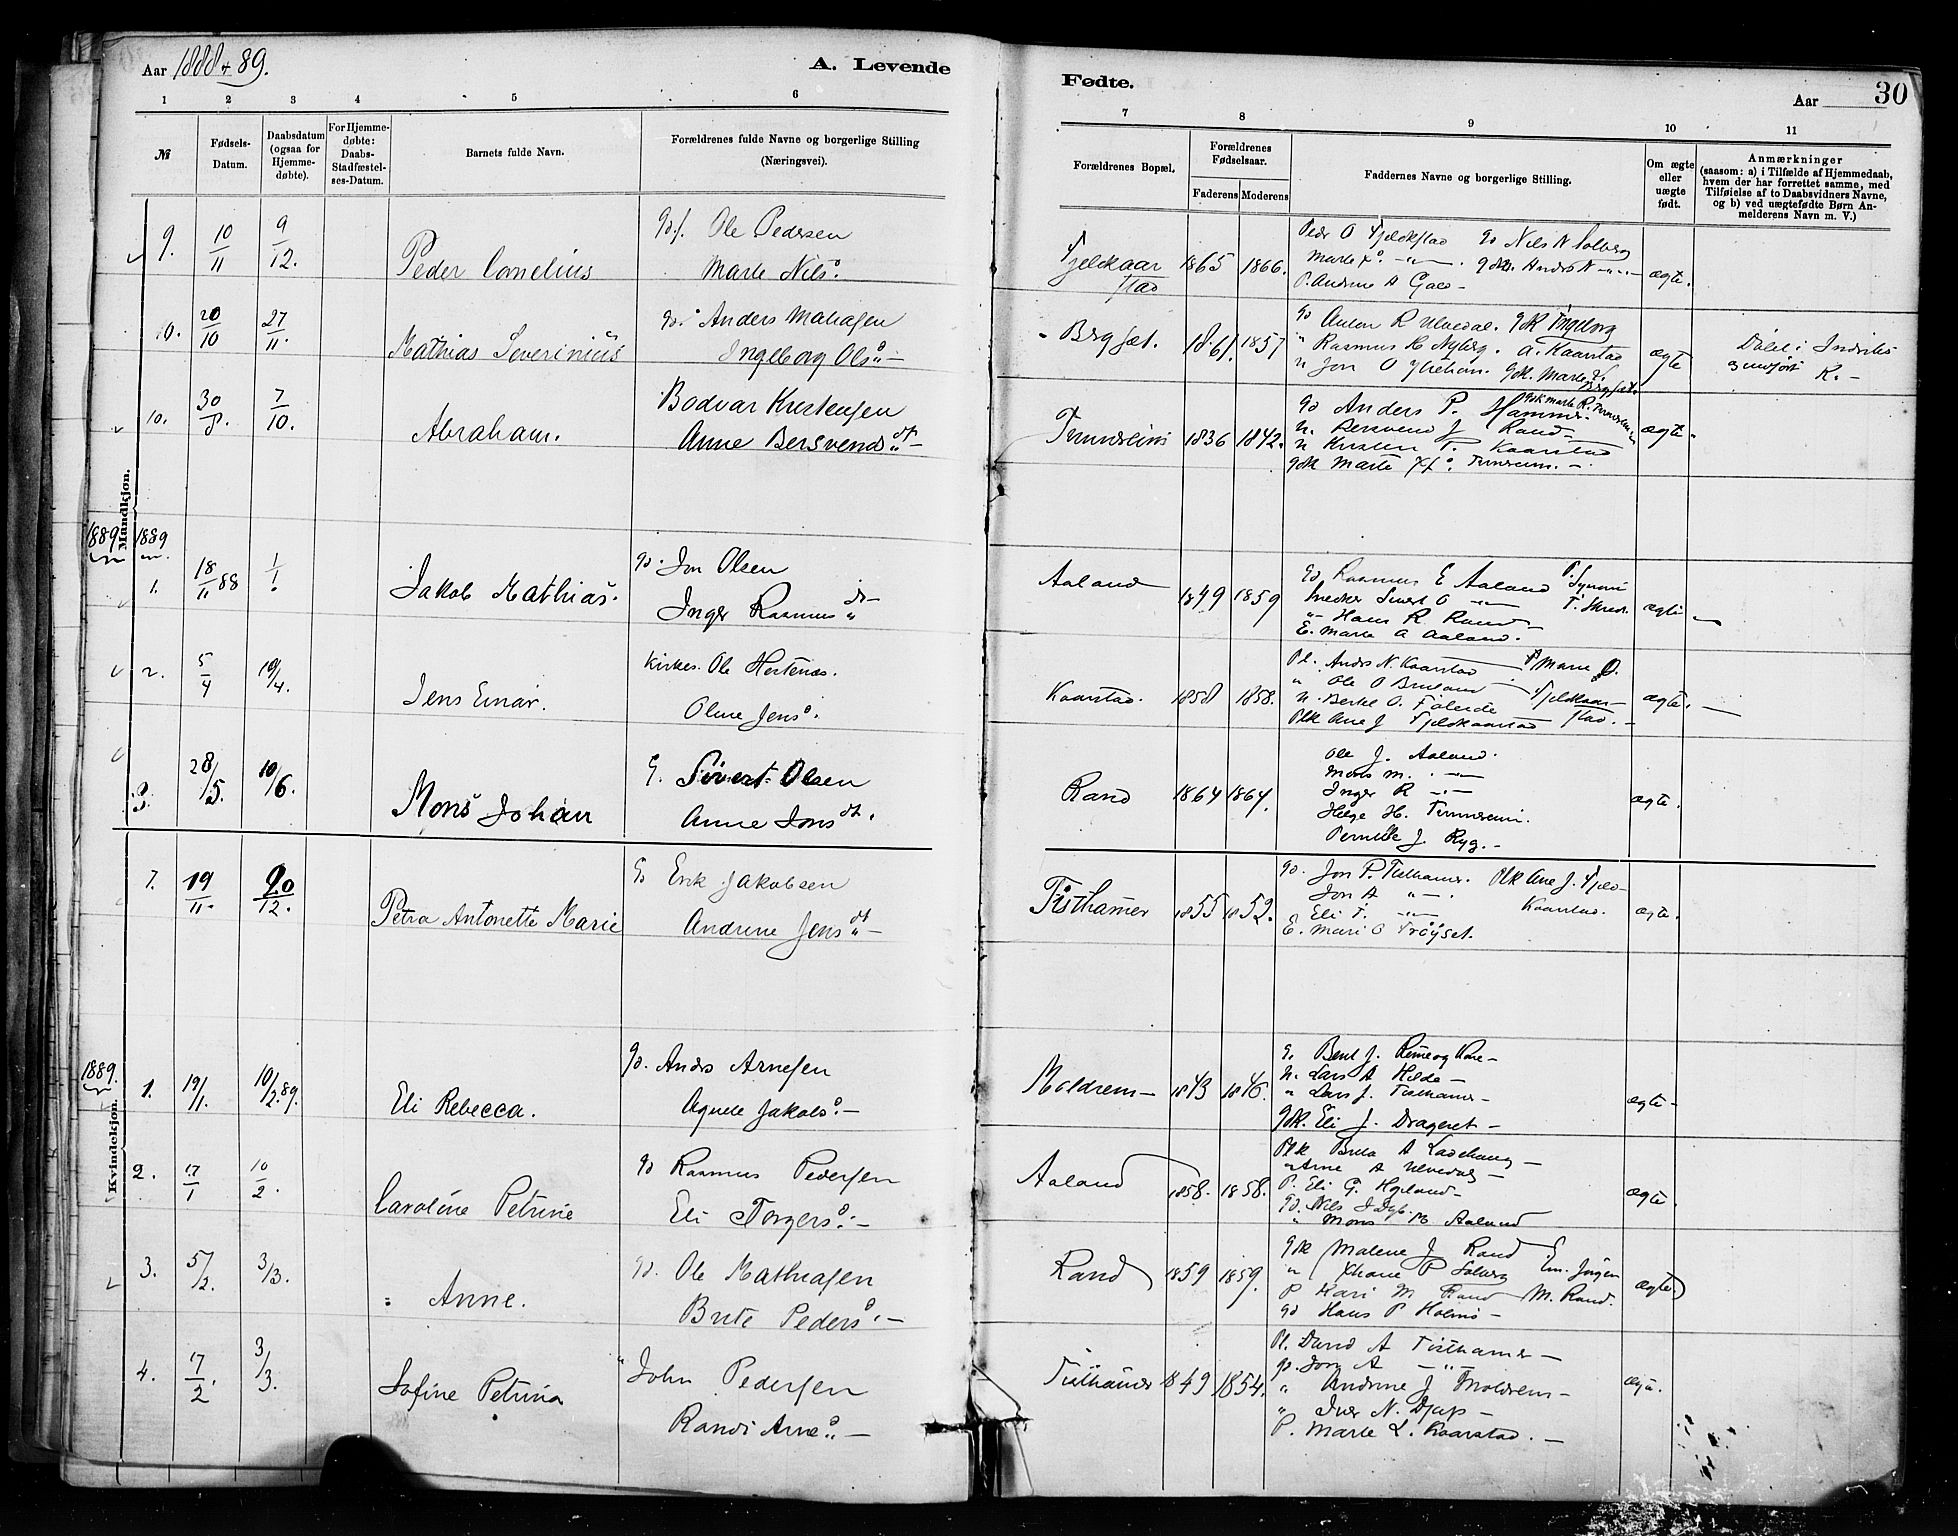 Aar 1888 + 89.
A. Levende
Fødte.
Aar
30
1 2 3 4 5 6 7 8 9 10 11
№
Fødsels-
Datum.
Daabsdatum
(ogsaa for
Hjemme-
døbte).
For Hjemme-
døbte:
Daabs-
Stadfæstel-
ses-Datum.
Barnets fulde Navn.
Forældrenes fulde Navne og borgerlige Stilling
(Næringsvei).
Forældrenes Bopæl.
Forældrenes
Fødselsaar.
Faderens Moderens
Faddernes Navne og borgerlige Stilling.
Om ægte
eller
uægte
født.
Anmærkninger
(saasom: a) i Tilfælde af Hjemmedaab,
hvem der har forrettet samme, med
Tilføielse af to Daabsvidners Navne,
og b) ved uægtefødte Børn An-
melderens Navn m. V.)
Mandkjøn.
9. 10/11 9/12. Peder Cornelius
Ole Pedersen
Marte Nils
Fjeldkaar
stad
1865 1866.
ægte.
10. 20/10 27/11. Mathias Severinius
Anders Mathiasen
Ingeborg Ols
Bergset. 1861. 1857
Gd Anton R Ulvedal. Gdk Ingeborg
" Rasmus R Nyberg. A. Kaarstad
ægte
10. 30/8. 7/10. Abraham.
Bodvar Kristensen
Anne Bersvends dt
1836 1842.
Gd Anders P. Hammer
n. Bersvend J Rand
n Kristen P. Kaarstad
Gdk Marte
ægte
1889 1889
1. 18/11 88 1/1 Jakob Mathias.
Gd. Jon Olsen
Inger Rasmus dt
Aaland 1849 1859
Gd Rasmus E Aaland
Snedker Sivert O
" Hans R Rand
E. Marte A Aaland.
ægte
2. 5/4 19/4. Jens Einar.
Kirkes. Ole Hestenes.
Oline Jens
Kaarstad. 1858 1858.
Pl. Anders N. Kaarstad P Marie O.
" Ole O Bruland Fjeldkaar-
n. Bertel O. Faleide stad.
Plk Ane J Fjeldkaarstad
ægte.
3. 28/5. 10/6. Mons Johan
G. Sivert Olsen
Anne Jons dt.
Rand 1864 1864.
Ole J. Aaland.
Mons M. "
Inger R "
Helge H.
Pernille J. Ryg.
ægte.
7. 19/11. 20/12. Petra Antonette Marie
G Erik Jakobsen
Andrine Jens dt
Tisthamer 1855 1852.
Gd. Jon P. Tisthamer. Plk Ane J. Fjeld-
Jon A " Kaarstad.
Eli T. "
E. Mari O Frøyset.
ægte.
1889.
Kvindekjøn.
1. 19/1. 10/2.89. Eli Rebecca.
Gd. Anders Arnesen
Agnete Jakobs
Moldrem 1843 1846.
G. Bent J. Reme og Kone
n. Lars A Hilde
" Lars J. Tisthamer
Gdk. Eli J. Drageset
ægte
2. 17/1 10/2. Caroline Petrine
Gd Rasmus Pedersen
Eli Torgers
Aaland 1858. 1858.
P. Eli G. Hjeland
" Mons M Aaland
ægte.
3. 5/2. 3/3. Anne.
Gd. Ole Mathiasen
Brite Peders
Rand 1859 1859.
Gdk Malene J Rand
P Kari M Rand M. Rand.
Gd Hans P Holmø
ægte
4. 17/2. 3/3. Sofine Petrina
" John Pedersen
Randi Arne
Tisthamer 1849 1854.
Pl. David A Tisthamer
Gd. Jon A "
" Andrine J Moldrem
" Iver N. Djup
P. Marte L. Kaarstad.